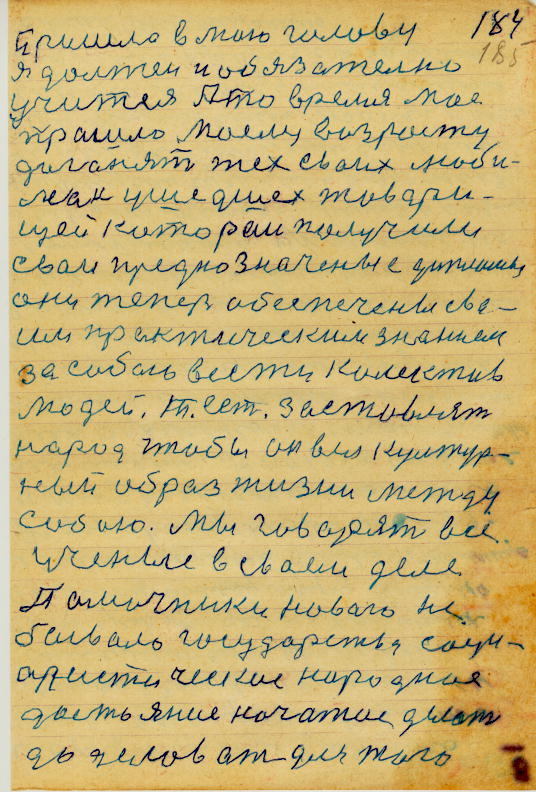 184
185
Пришло в мою голову
я должен и обязателно
учится Это время мое
прашло моему возросту
доганят тех своих люби-
мак ушедших товари-
щей которои получили
сваи преднозначеные дипломы
они тепер обеспечены сва-
им практическим знанием
за собою вести колектив
людей. Т. ест. заставлят
народ чтобы он вел култур-
ный образ жизни между
собою. Мы говорят все
ученые в своем деле
Памочники новаго не
бывало государства соци-
алистическое народное
достояние начатое делат
до делов от для того